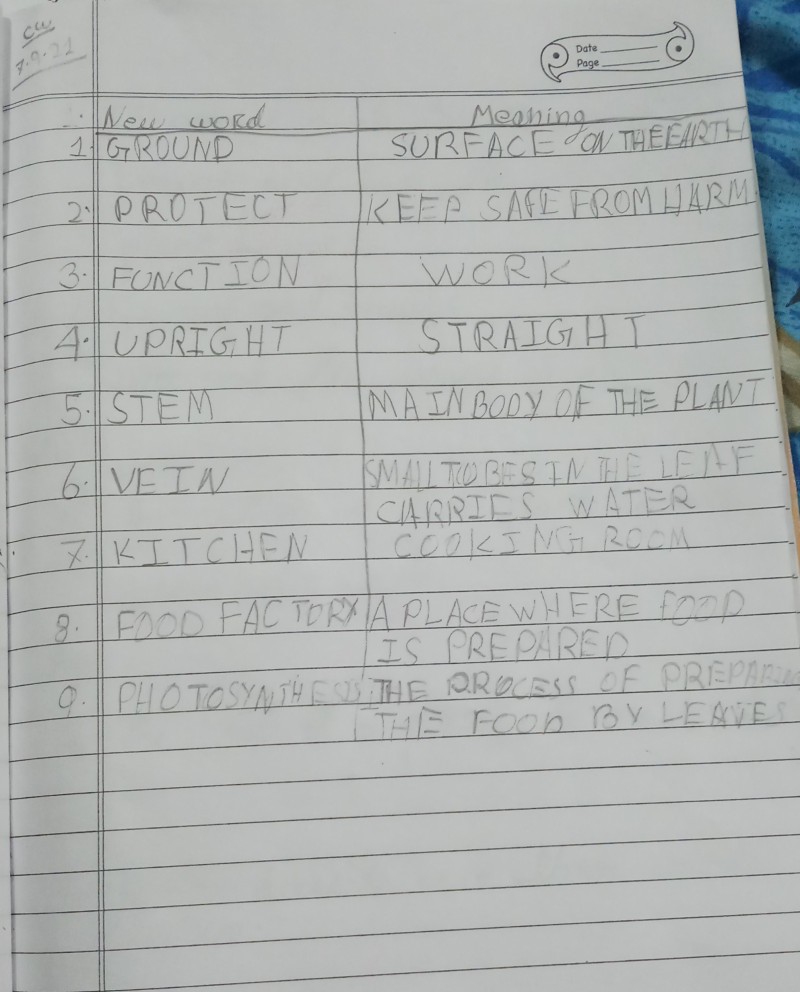 CW
7.9.21
Date
Page
New word Meaning
1. GROUND SURFACE ON THE EARTH
2. PROTECT KEEP SAFE FROM HARM
3. FUNCTION WORK
4. UPRIGHT STRAIGHT
5. STEM MAIN BODY OF THE PLANT
6. VEIN SMALL TUBES IN THE LEAF
CARRIES WATER
7. KITCHEN COOKING ROOM
8. FOOD FACTORY A PLACE WHERE FOOD
IS PREPARED
9. PHOTOSYNTHESIS THE PROCESS OF PREPARING
THE FOOD BY LEAVES